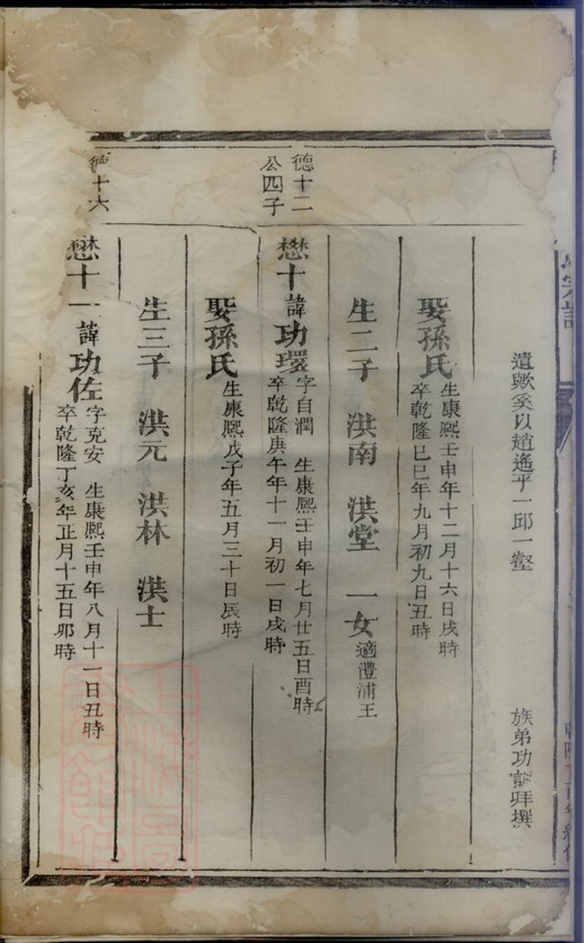 遺歟奚以趙遙乎一邱一壑
族弟功 拜撰
娶孫氏
生康熙壬申年十二月十六日戌時
卒乾隆已巳年九月初九日丑時
生二子 洪南 洪堂 一女適澧浦王
德十二
公四子
懋十諱功環
字自潤 生康熙壬申年七月廿五日酉時
卒乾隆庚午年十一月初一日戌時
娶孫氏
生康熙戊子年五月三十日辰時
生三子 洪元 洪林 洪士
德十六
懋十一諱功佐
字克安 生康熙壬申年八月十一日丑時
卒乾隆丁亥年正月十五日卯時